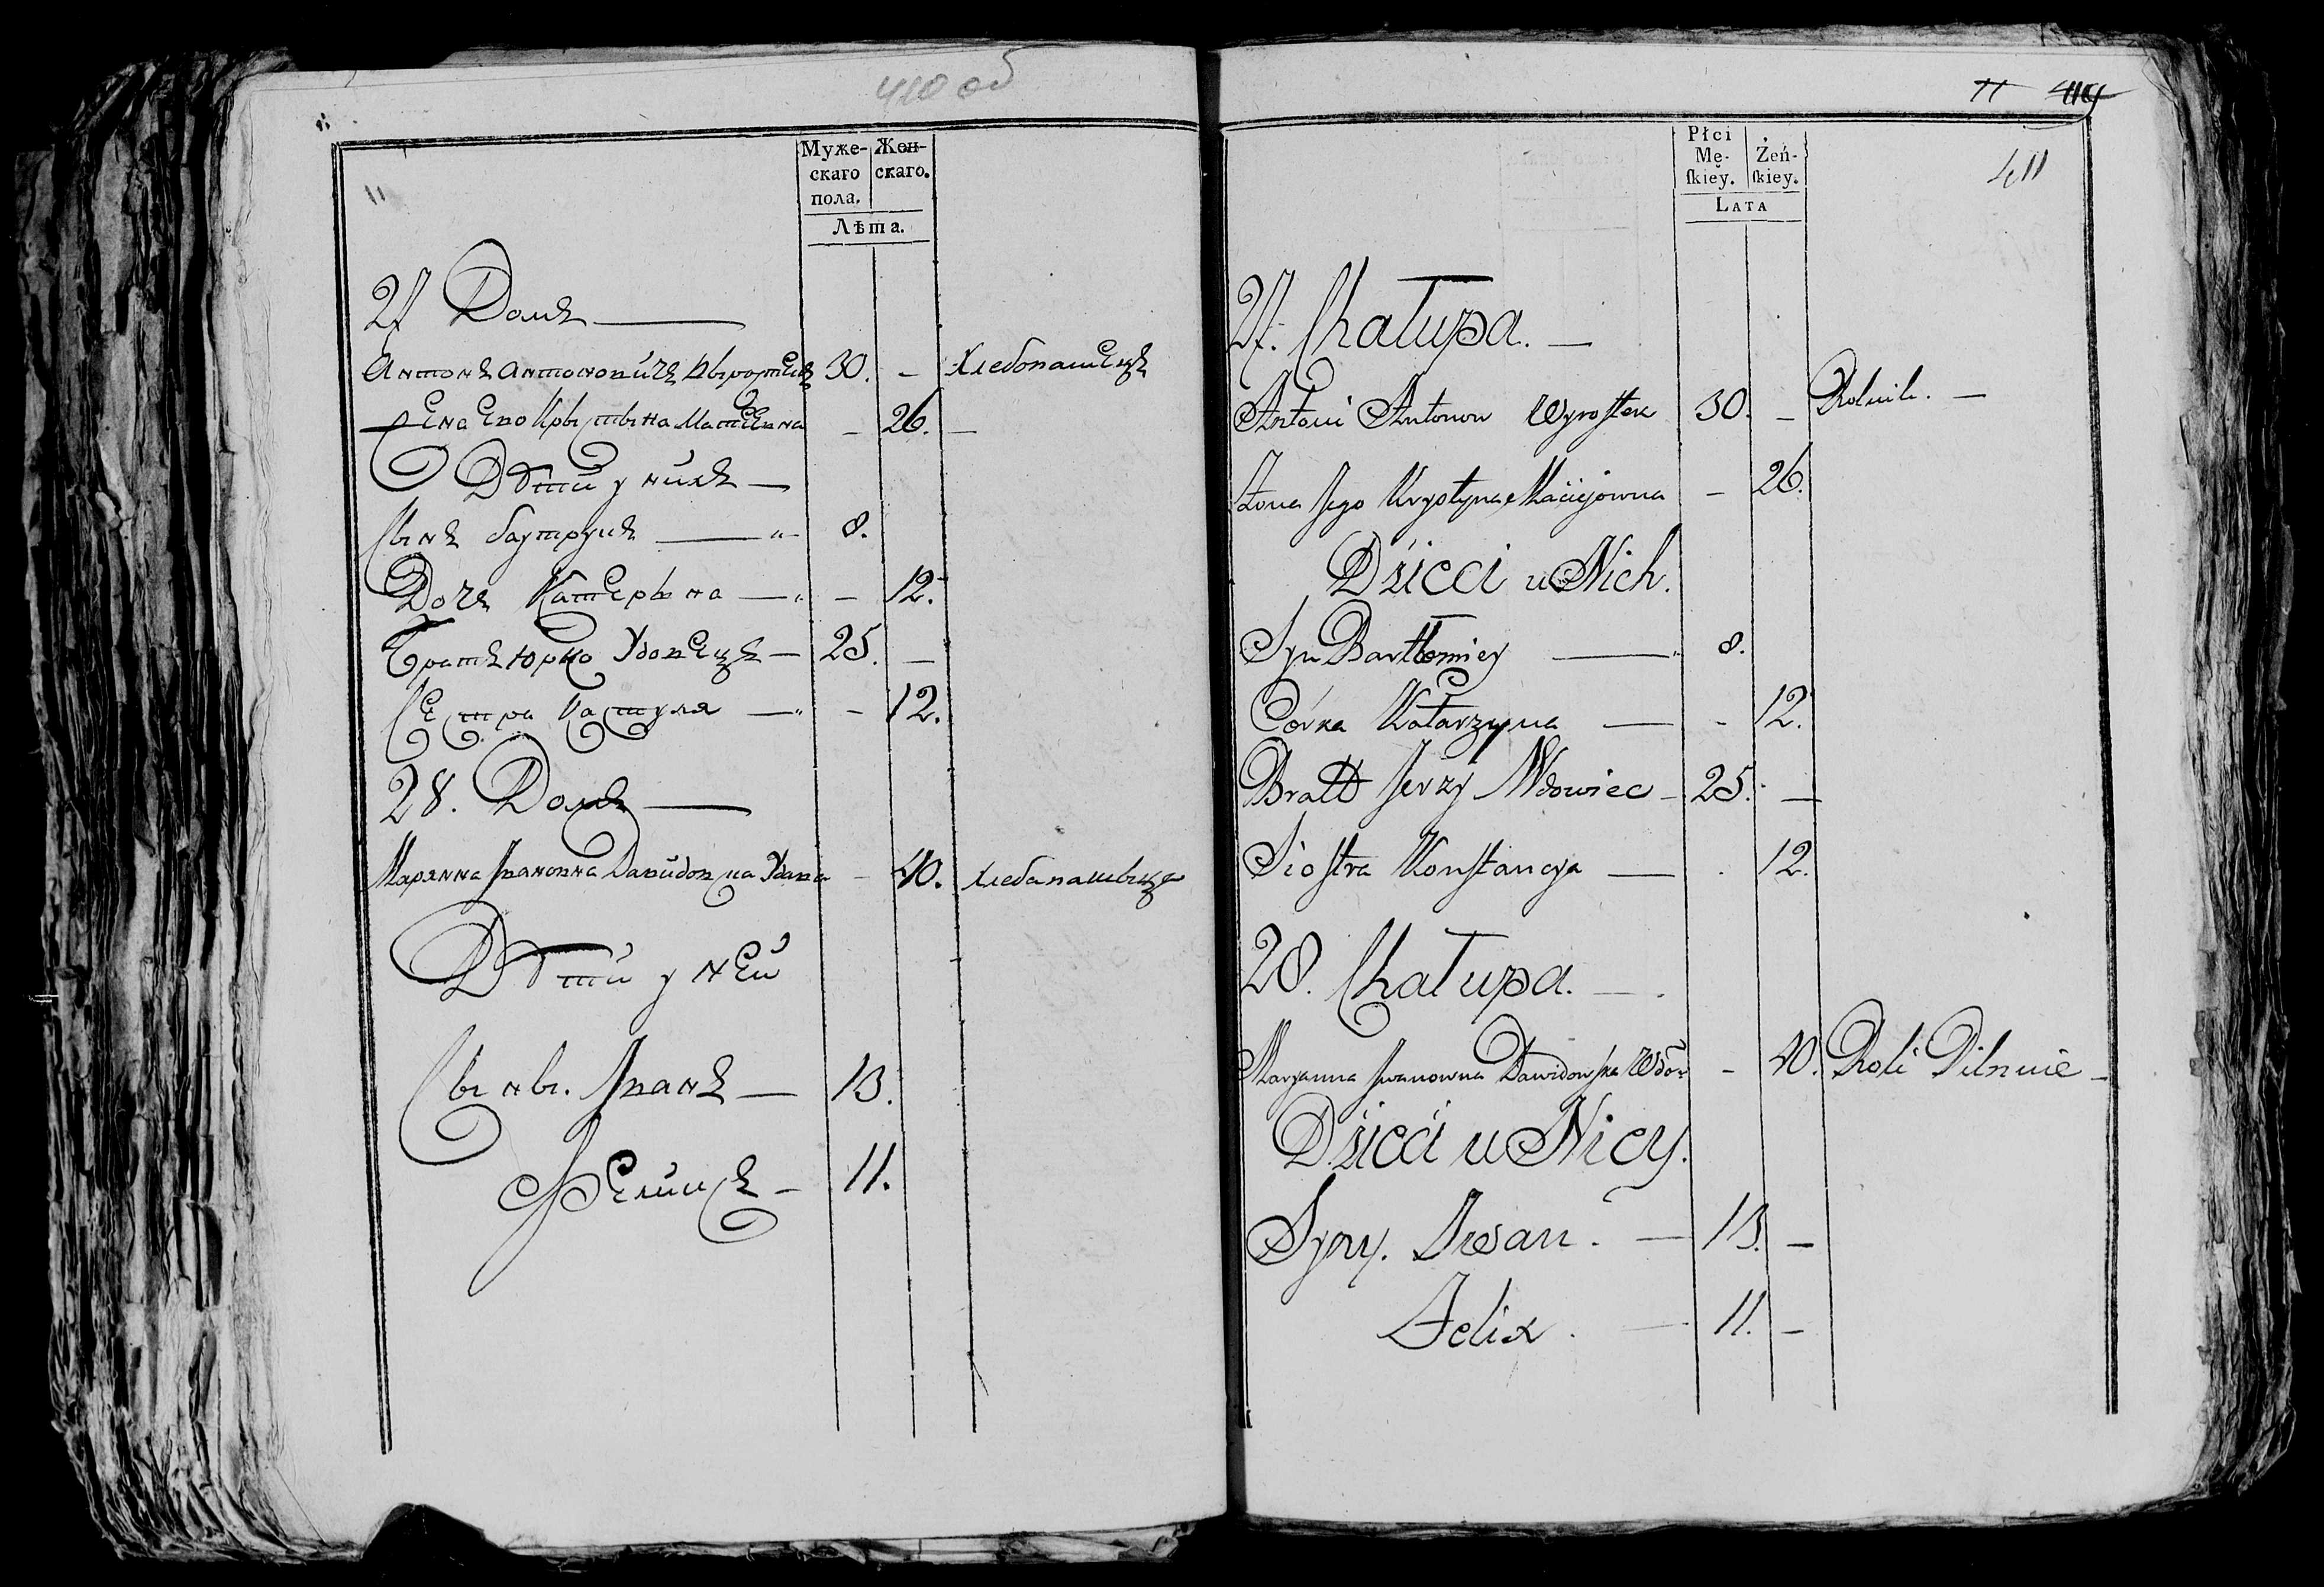 410 об
11
Муже-
скаго
пола.
Жен-
скаго.
Лѣта.
27 Домъ —
Антонъ Антоновичъ Выростекъ 30. — Хлебопашецъ
Жена Ево Крыстына Матеевна — 26. —
Дѣти у нихъ —
Сынъ Баутруцъ — 8.
Дочъ Катерына — — 12.
Братъ Юрко Удовецъ — 25. —
Сестра Кастуля — — 12.
28. Домъ —
Марянна Ивановна Давидовска Удова — 40. хлебапашыца
Дѣти у Ней
Сыны. Иванъ — 13.
Феликсъ — 11.
11 414
411
Płci
Mę-
ſkiey.
Żeń-
ſkiey.
LATA
27. Chałupa. —
Antoni Antonow Wyroſtek 30. — Rolnik. —
Żona Jego Krystyna Maciejowna — 26.
Dzieci u Nich.
Syn Bartłomiey — 8.
Córka Katarzyna — - 12.
Bratt Jerzy Wdowiec — 25. —
Sioſtra Konſtancya — . 12.
28. Chałupa. —
Maryanna Iwanowna Dawidowſka Wdow — 40. Roli Pilnuie —
Dzieci u Niey.
Syny. Iwan. — 13. —
Felix. — 11. —